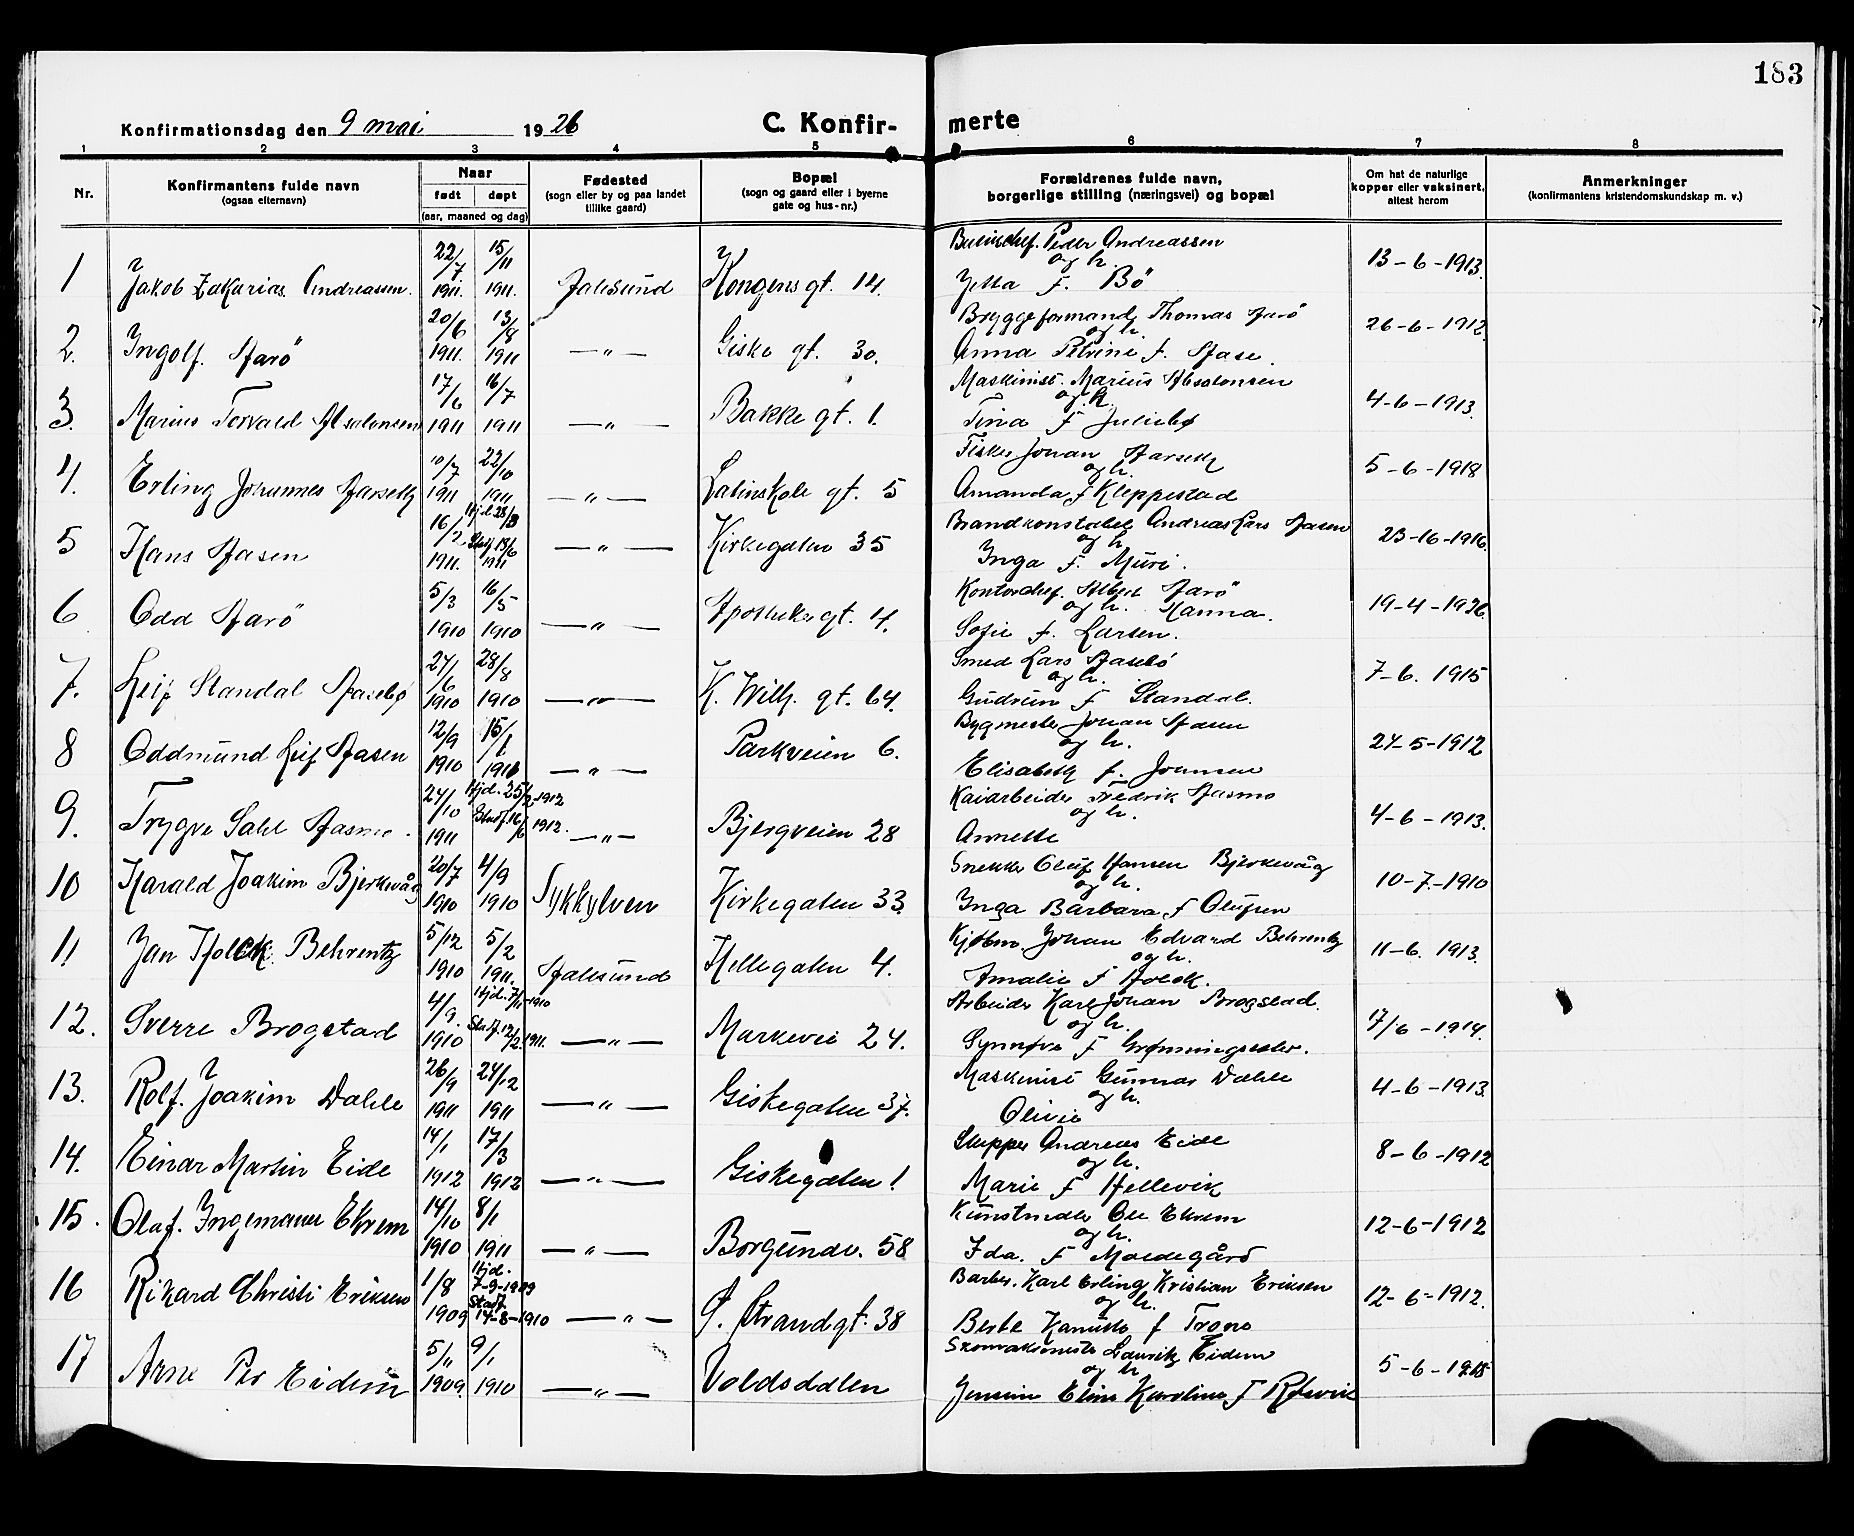 183
Konfirmationsdag den 9 mai 1926
C. Konfir- merte
1 2 3 4 5 6 7 8
Nr.
Konfirmantens fulde navn
(ogsaa efternavn)
Naar
født døpt
(aar, maaned og dag)
Fødested
(sogn eller by og paa landet
tillike gaard)
Bopæl
(sogn og gaard eller i byerne
gate og hus-nr.)
Forældrenes fulde navn,
borgerlige stilling (næringsvei) og bopæl
Om hat de naturlige
kopper eller vaksinert,
attest herom
Anmerkninger
(konfirmantens kristendomskundskap m. v.)
1 Jakob Zakarias Andreassen. 22/7. 1911. 15/11 1911. Aalesund Kongensgt. 14. Peder Andreassen
og h.
Jetta f. Bö 13-6-1913.
2. Ingolf Aarö 20/6 1911. 13/8 1911 —"— Giske gt. 30. Bryggeformand Thomas Aarö
og h.
Anna Petrine f. Aase. 26-6-1912
3. Marius Torvald Absalonsen 17/6 1911 16/7 1911 —"— Bakke gt. 1. Maskinist. Marius Absalonsen
og h.
Tina f Juliebø 4-6-1913.
4. Erling Johannes Aarseth 10/7 1911 22/10 1911 —"— Latinskole gt. 5 Fisker Johan Aarseth
og h.
Amanda f Kleppestad 5-6-1918
5 Hans Aasen 16/2. 1911. Hjd 28/3 Stadf. 18/6 1911 —"— Kirkegaten 35 Brandkonstabel Andreas Lars Aasen
og h
Inga f. Muri. 23-16-1916.
6 Odd Aarö 5/3 1910 16/5 1910 —"— Apothekergt. 4. Kontorchef. Albert Aarö
og h. Hanna.
Sofie f. Larsen. 19-4-1926.
7. Leif Standal Aasebø 24/6 1910 28/8 1910 —"— K. Wilh. gt. 64. Smed Lars Aasebø
og h.
Gudrun f Standal. 7-6. 1915
8 Oddmund Leif Aasen 12/9 1910 15/1 1911 —"— Parkveien 6. Bygmester Johan Aasen
og h.
Elisabeth f. Johnsen 24-5-1912
9. Trygve Sahl Aasmo. 24/10 1911 Hjd. 25/2-1912 Stadf. 16/6 1912. —"— Bjergveien 28 Kaiarbeider Fredrik Aasmo
og h.
Annette 4-6-1913.
10 Harald Joakim Bjerkevåg 20/7 1910 4/9 1910 Sykkylven Kirkegaten 33. Snekker Oluf Hansen Bjerkevåg
og h.
Inga Barbara f Olufsen 10-7-1910
11 Jan Holck. Behrentz 5/12 1910 5/2 1911. Aalesund Hellegaten 4. Kjøbm. Johan Edvard Behrentz
og h.
Amalie f Holck. 11-6. 1913.
12. Sverre Brogstad 4/9. 1910 Hjd. 7/11-1910 Stadf. 12/2.1911. —"— Markevei 24. Arbeider Karl Johan Brogstad.
og h.
Synnøve f Grønningsæter. 17/6-1914.
13. Rolf. Joakim Dahle 26/9 1911 24/12 1911 —"— Giskegaten 37. Maskinist Gunnar Dahle
og h.
Olivie 4-6-1913.
14. Einar Martin Eide 14/1 1912 17/3 1912 —"— Giskegaten 1 Skipper Andreas Eide
og h.
Marie f Hellevik 8-6-1912
15. Olaf. Ingemann Ekrem 14/10 1910 8/1 1911 —"— Borgundv. 58 Kunstmaler Ole Ekrem
og h.
Ida. f Moldegård 12-6-1912
16 Rikard Christi Eriksen 1/8 1909 Hjd. 7-9-1909 Stadf. 14-8-1910 —"— Ø. Strandgt. 38 Barber. Karl Erling Kristian Eriksen
og h.
Berte f Trone 12-6-1912.
17 Arne Per Eidem 5/11 1909. 9/1 1910 —"— Voldsdalen Laurits Eidem
og h
Elins Karoline f Røsvik 5-6-1915